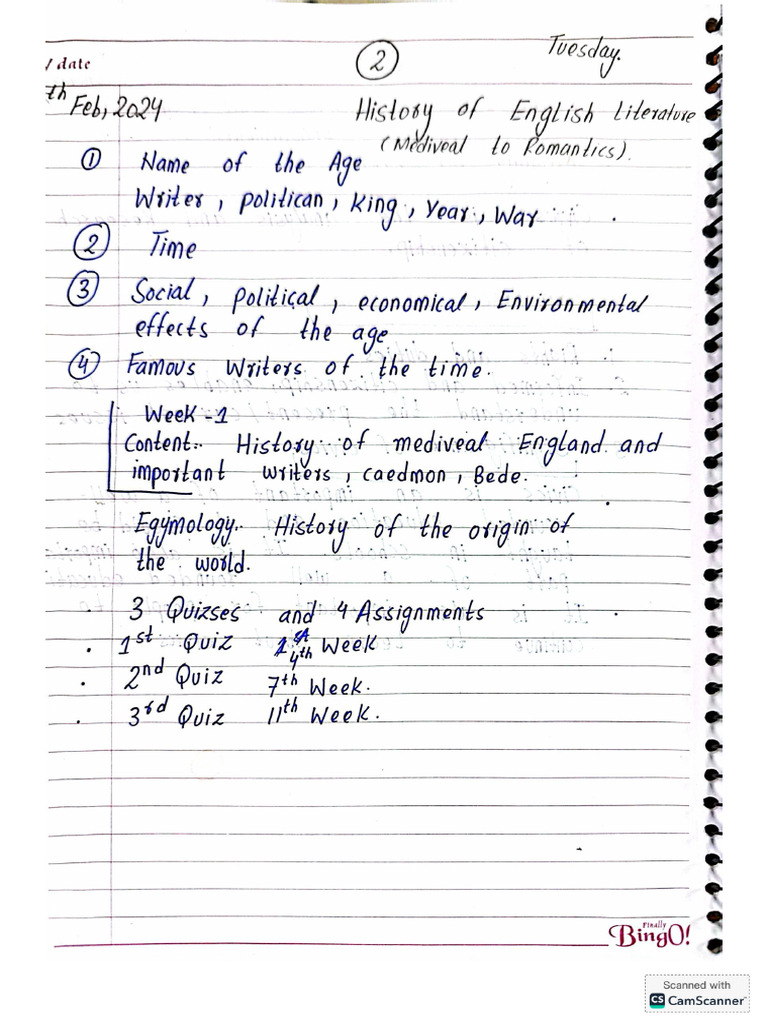 / date
②
Tuesday.
th Feb, 2024
History of English Literature
(Mediveal to Romantics).
① Name of the Age
Writer, politican, King, Year, War
② Time
③ Social, political, economical, Environmental
effects of the age
④ Famous Writers of the time.
Week -1
Content:- History of mediveal England and
important writers, caedmon, Bede.
Egymology:- History of the origin of
the world.
3 Quizses and 4 Assignments
. 1st Quiz 4th Week
. 2nd Quiz 7th Week.
. 3rd Quiz 11th Week.
Finally
BingO!
Scanned with
CS CamScanner